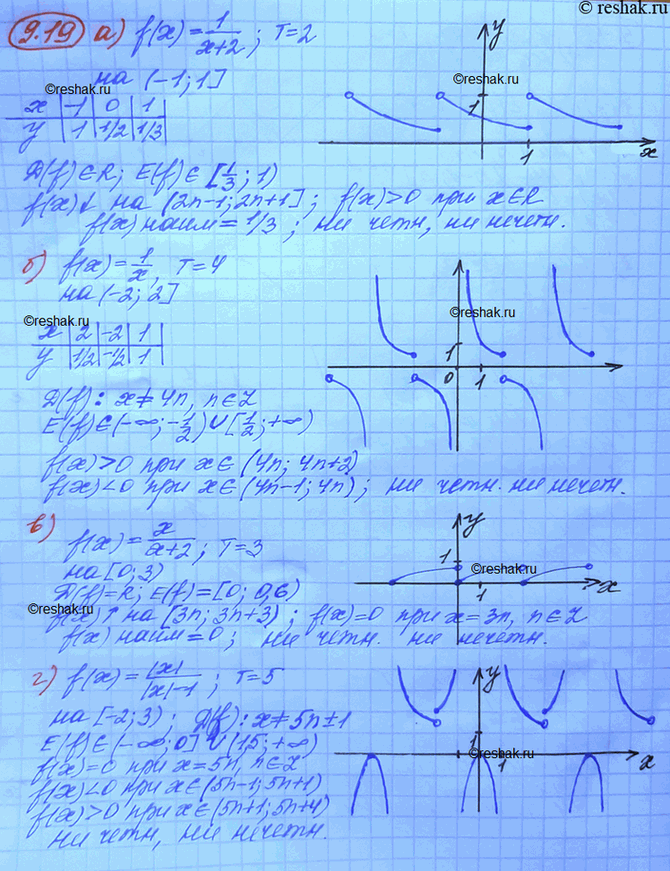 © reshak.ru
9.19 а) f(x) = 1/(x+2); T=2
на (-1; 1]
©reshak.ru
x | -1 | 0 | 1
y | 1 | 1/2 | 1/3
y
1
1
x
D(f)∈R; E(f)∈[1/3; 1)
f(x)↓ на (2n-1; 2n+1]; f(x)>0 при x∈R
f(x) наим = 1/3; ни четн, ни нечетн.
б) f(x) = 1/x, T=4
на (-2; 2]
©reshak.ru
x | 2 | -2 | 1
y | 1/2 | -1/2 | 1
©reshak.ru
1
0
1
D(f): x≠4n, n∈Z
E(f)∈(-∞; -1/2)∪[1/2; +∞)
f(x)>0 при x∈(4n; 4n+2)
f(x)<0 при x∈(4n-1; 4n); ни четн. ни нечетн.
в) f(x) = x/(x+2); T=3
на [0; 3)
D(f)=R; E(f)=[0; 0,6)
©reshak.ru
f(x)↑ на [3n; 3n+3); f(x)=0 при x=3n, n∈Z
f(x) наим=0; ни четн. ни нечетн.
y
1
©reshak.ru
1
x
г) f(x) = |x|/(|x|-1); T=5
на [-2; 3); D(f): x≠5n±1
E(f)∈(-∞; 0]∪(1,5; +∞)
f(x)=0 при x=5n, n∈Z
f(x)<0 при x∈(5n-1; 5n+1)
f(x)>0 при x∈(5n+1; 5n+4)
ни четн, ни нечетн.
y
1
©reshak.ru
1
x